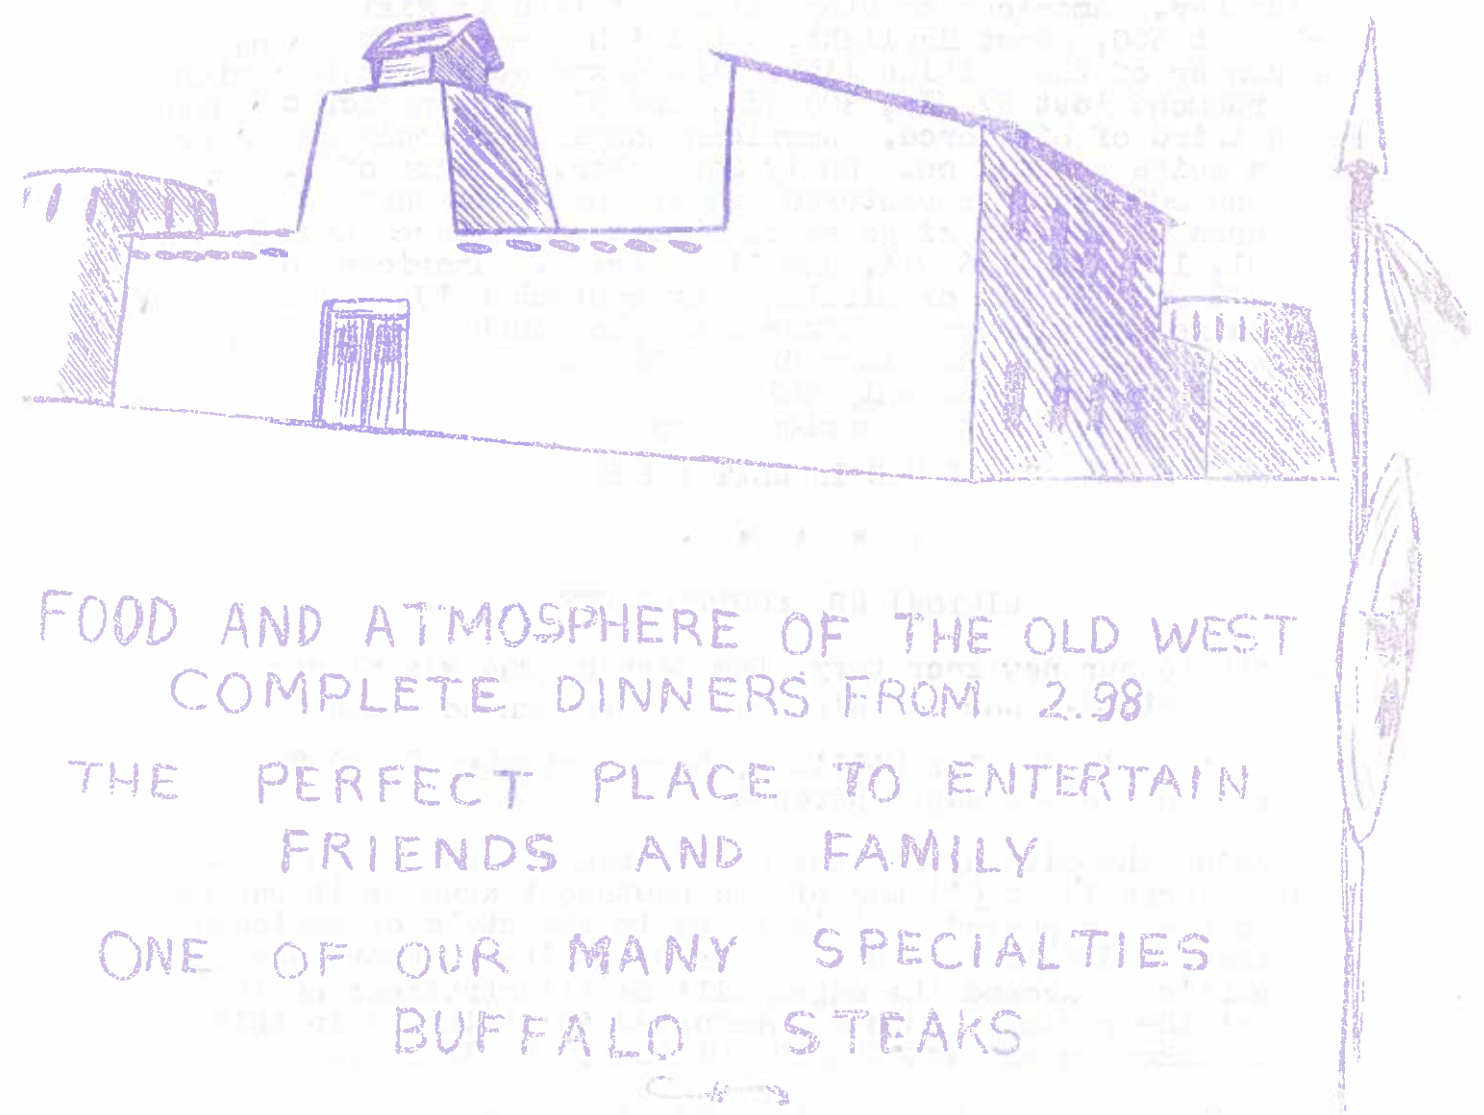 FOOD AND ATMOSPHERE OF THE OLD WEST
COMPLETE DINNERS FROM 2.98
THE PERFECT PLACE TO ENTERTAIN
FRIENDS AND FAMILY
ONE OF OUR MANY SPECIALTIES
BUFFALO STEAKS